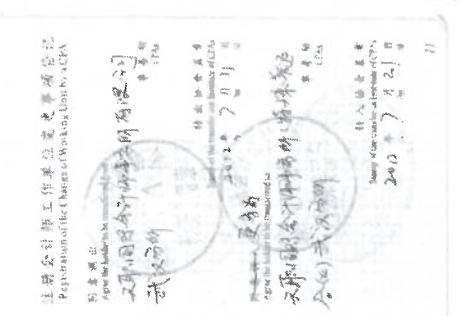 注册会计师工作单位变更事项登记
Registration of the Change of Working Unit by a CPA
同意调出
Agree the holder to be transferred from
天职国际会计师事务所有限公司
武汉分所
事务所
CPAs
转出协会盖章
Stamp of the transfer-out Institute of CPAs
2012 年 7 月 日
同意调入
Agree the holder to be transferred to
天职国际会计师事务所(特殊普通
合伙)武汉分所
事务所
CPAs
转入协会盖章
Stamp of the transfer-in Institute of CPAs
2012 年 7 月 21 日
11